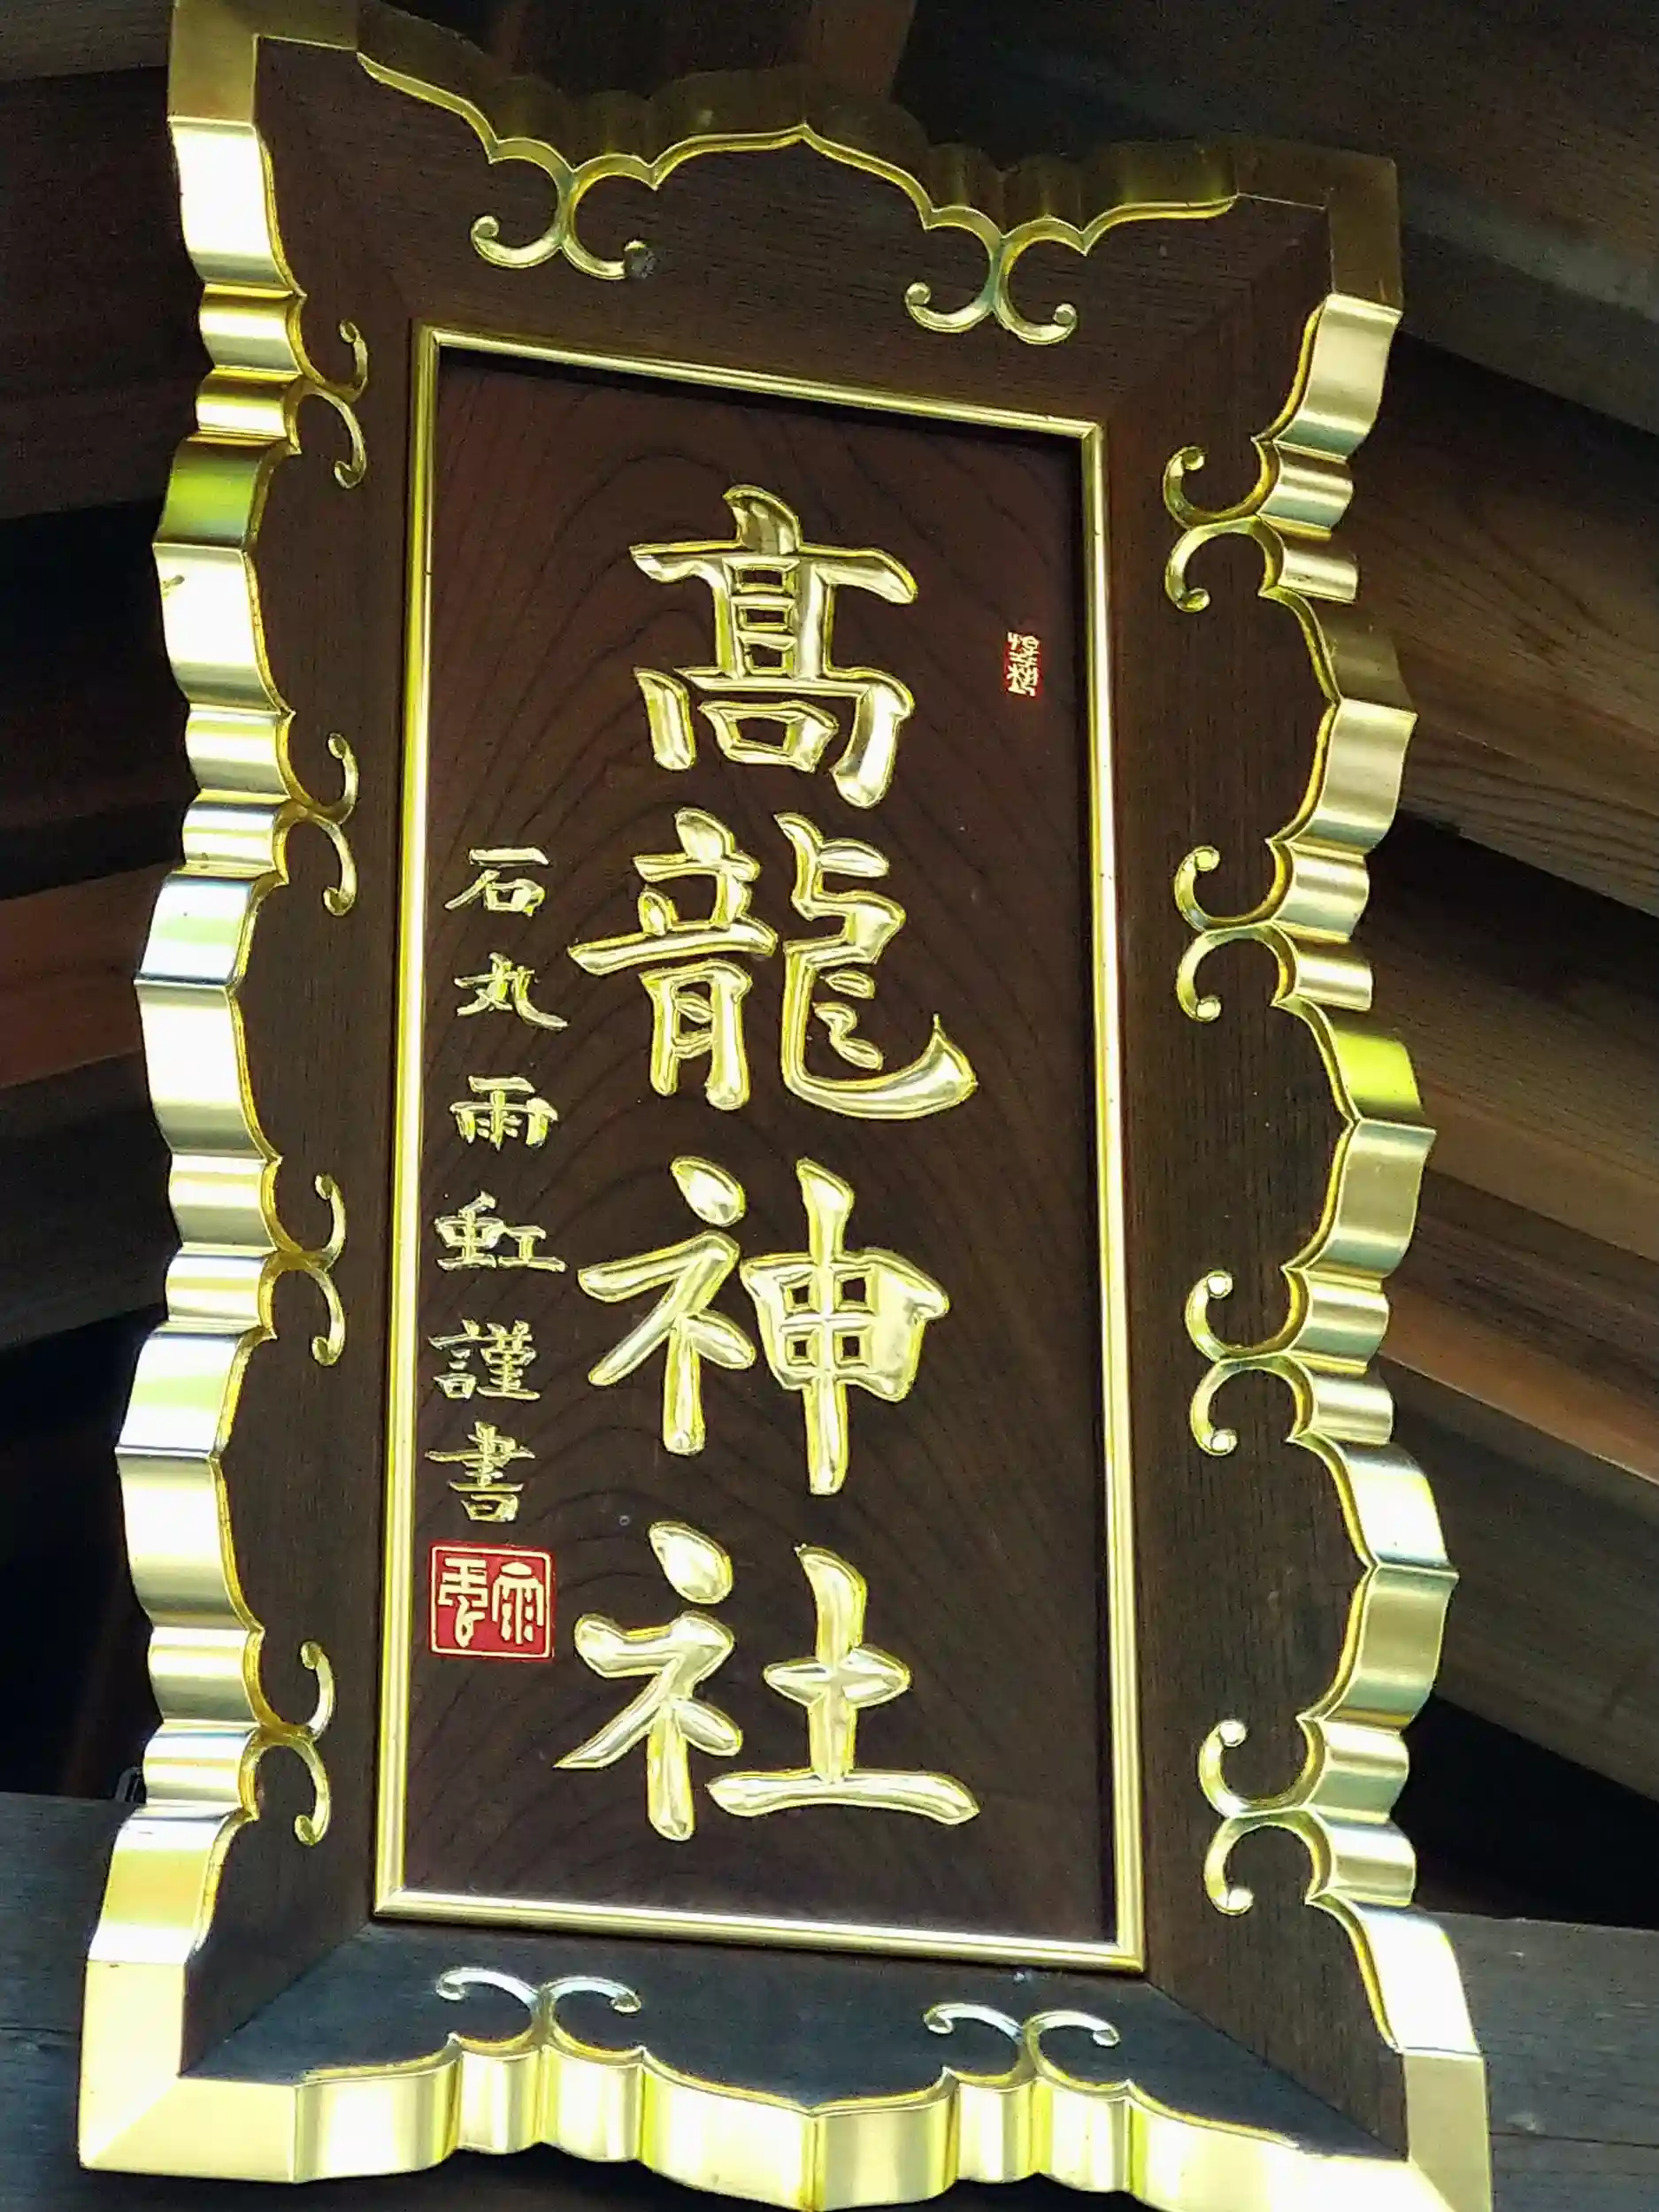 髙龍神社
石丸雨虹謹書